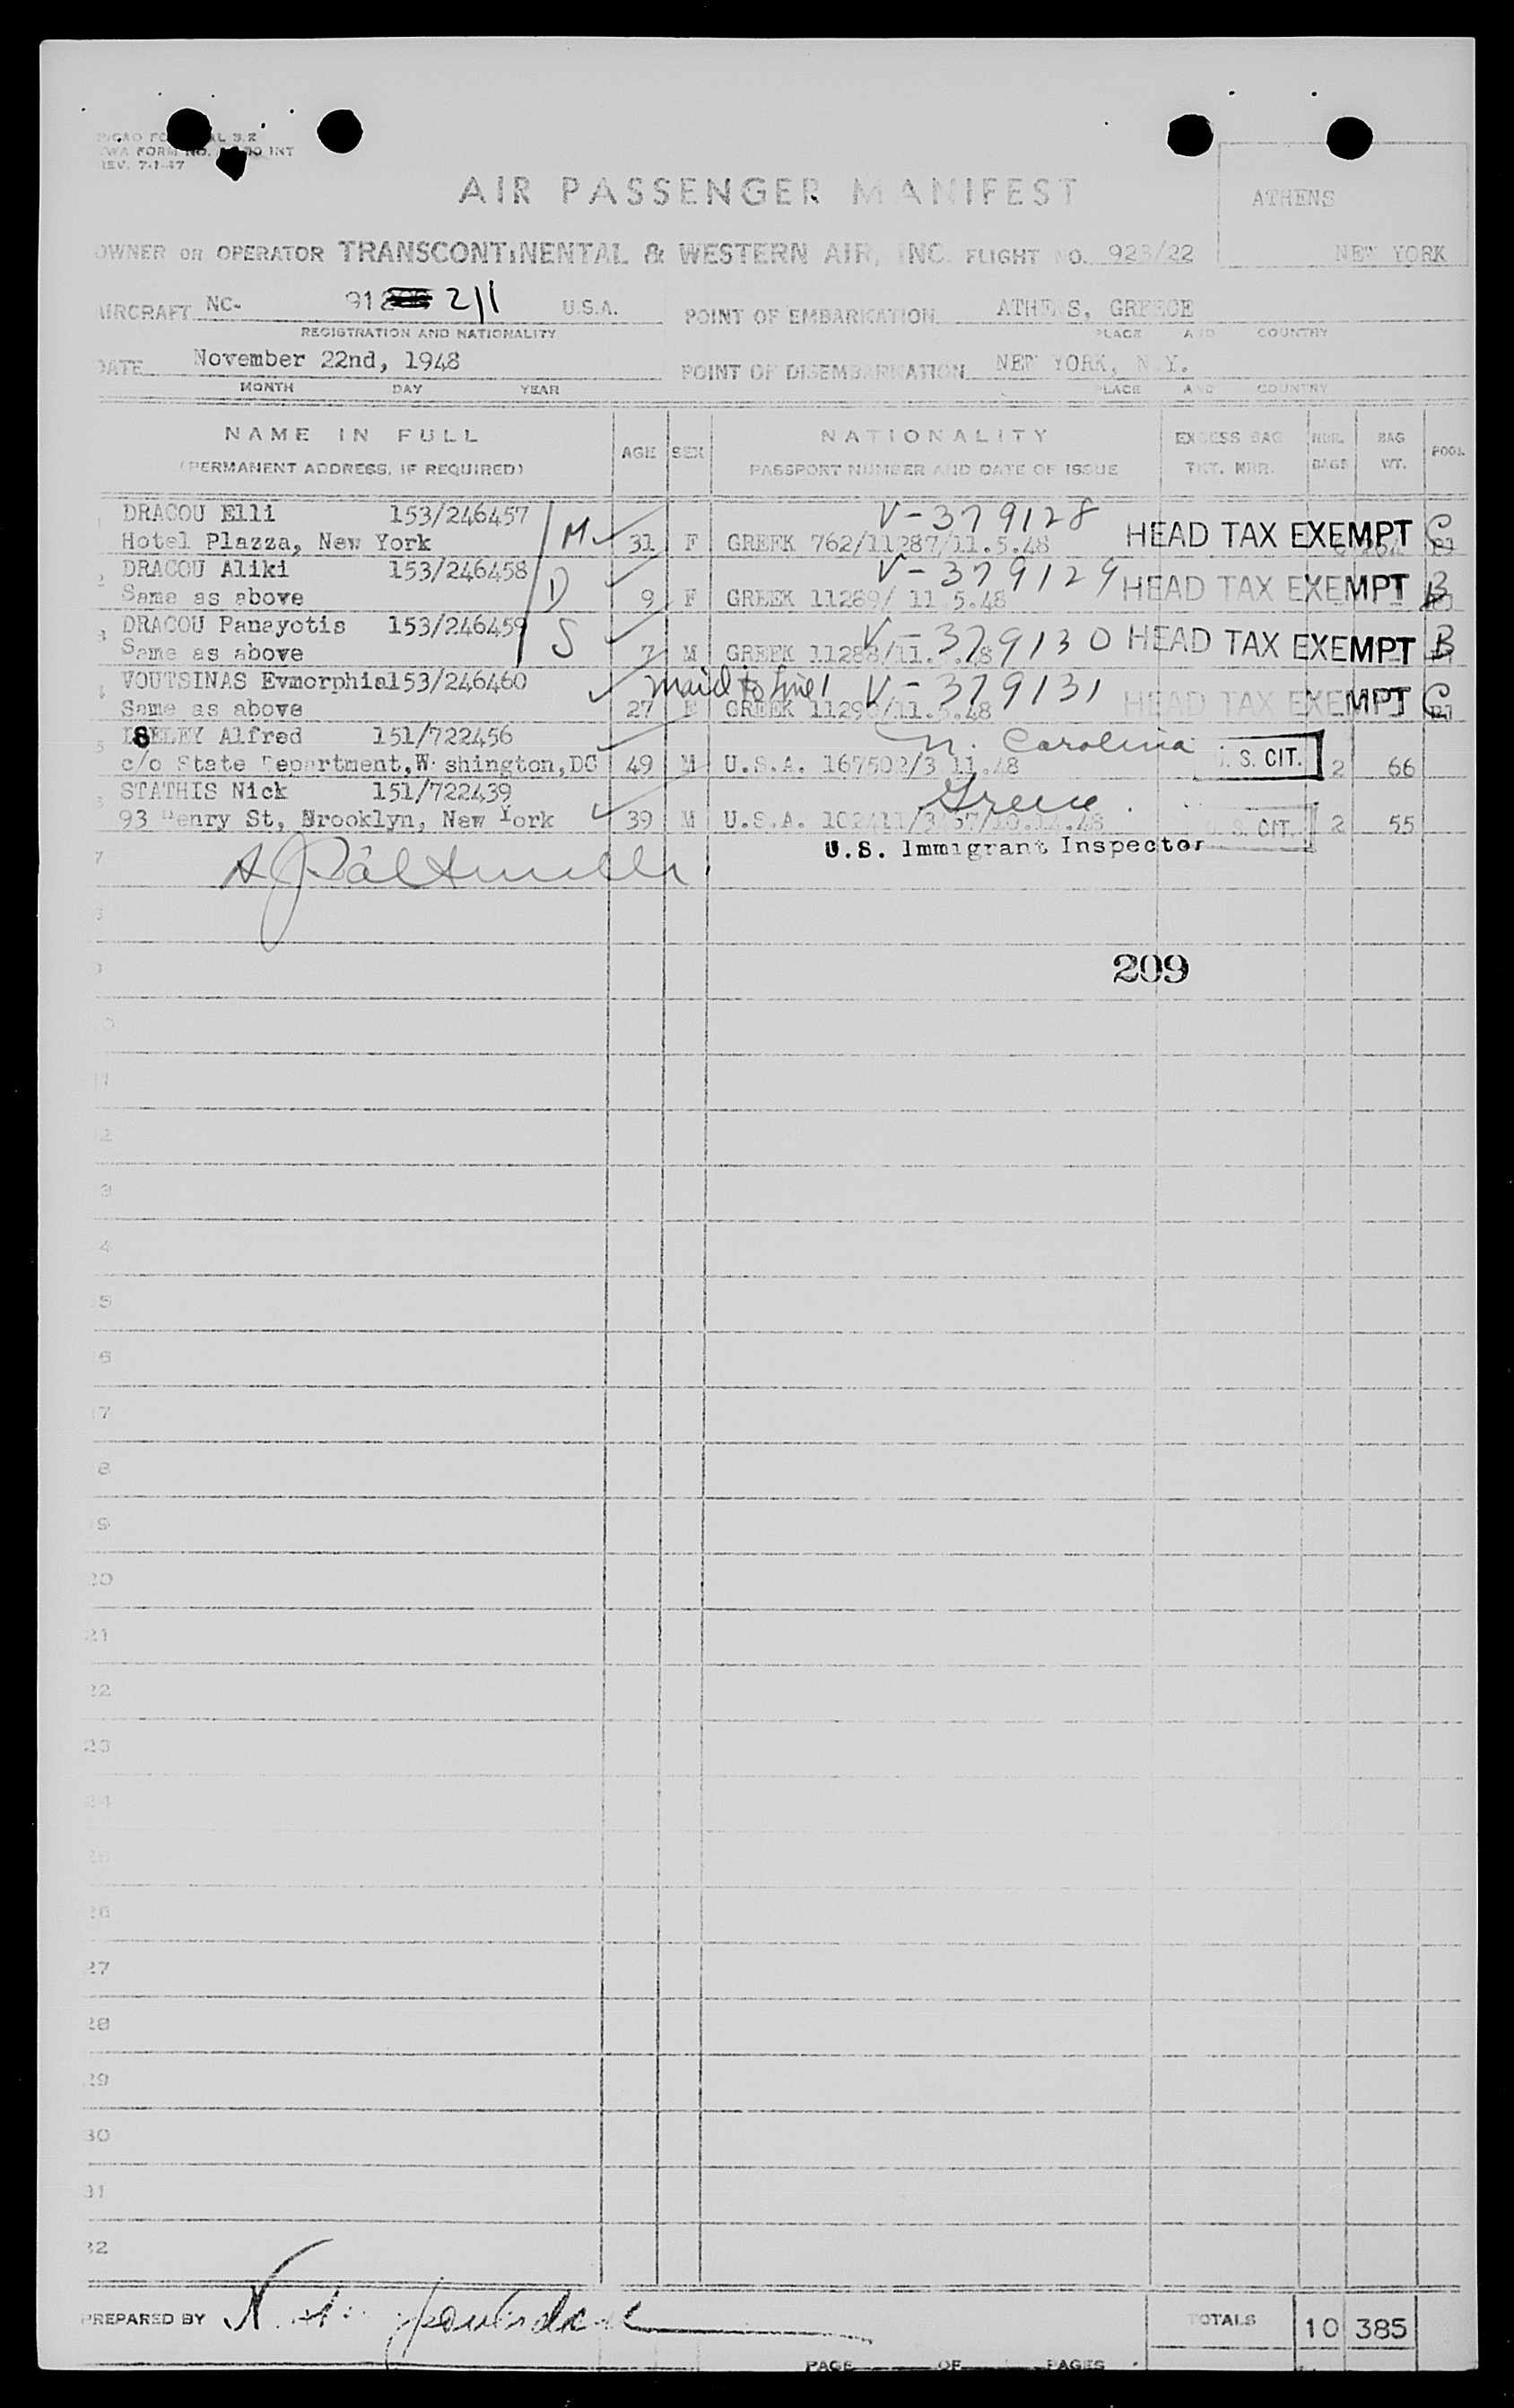 REV. 7-1-47
AIR PASSENGER MANIFEST
ATHENS
NEW YORK
OWNER OR OPERATOR TRANSCONTINENTAL & WESTERN AIR, INC. FLIGHT NO. 923/22
AIRCRAFT NC- 912 211 U.S.A. POINT OF EMBARKATION ATHENS, GREECE
REGISTRATION AND NATIONALITY PLACE AND COUNTRY
DATE November 22nd, 1948 POINT OF DISEMBARKATION NEW YORK, N.Y.
MONTH DAY YEAR PLACE AND COUNTRY
NAME IN FULL AGE SEX NATIONALITY EXCESS BAG NBR. BAG
(PERMANENT ADDRESS, IF REQUIRED) PASSPORT NUMBER AND DATE OF ISSUE TKT. NBR. BAGS WT.
1 DRACOU Elli 153/246457 V-379128
Hotel Plazza, New York M 31 F GREEK 762/11287/11.5.48 HEAD TAX EXEMPT C
2 DRACOU Aliki 153/246458 V-379129
Same as above D 9 F GREEK 11289/ 11.5.48 HEAD TAX EXEMPT B
3 DRACOU Panayotis 153/246459 V-379130
Same as above S 7 M GREEK 11288/11.5.48 HEAD TAX EXEMPT B
4 VOUTSINAS Evmorphia153/246460 maid to line 1 V-379131
Same as above 27 F GREEK 11290/11.5.48 HEAD TAX EXEMPT C
5 Alfred 151/722456 N. Carolina
c/o State Department,Washington,DC 49 M U.S.A. 167502/3.11.48 U.S. CIT. 2 66
6 STATHIS Nick 151/722439 Greece
93 Henry St, Brooklyn, New York 39 M U.S.A. U.S. CIT. 2 55
7 U.S. Immigrant Inspector
8
9 209
10
11
12
13
14
15
16
17
18
19
20
21
22
23
24
25
26
27
28
29
30
31
32
PREPARED BY TOTALS 10 385
PAGE OF PAGES